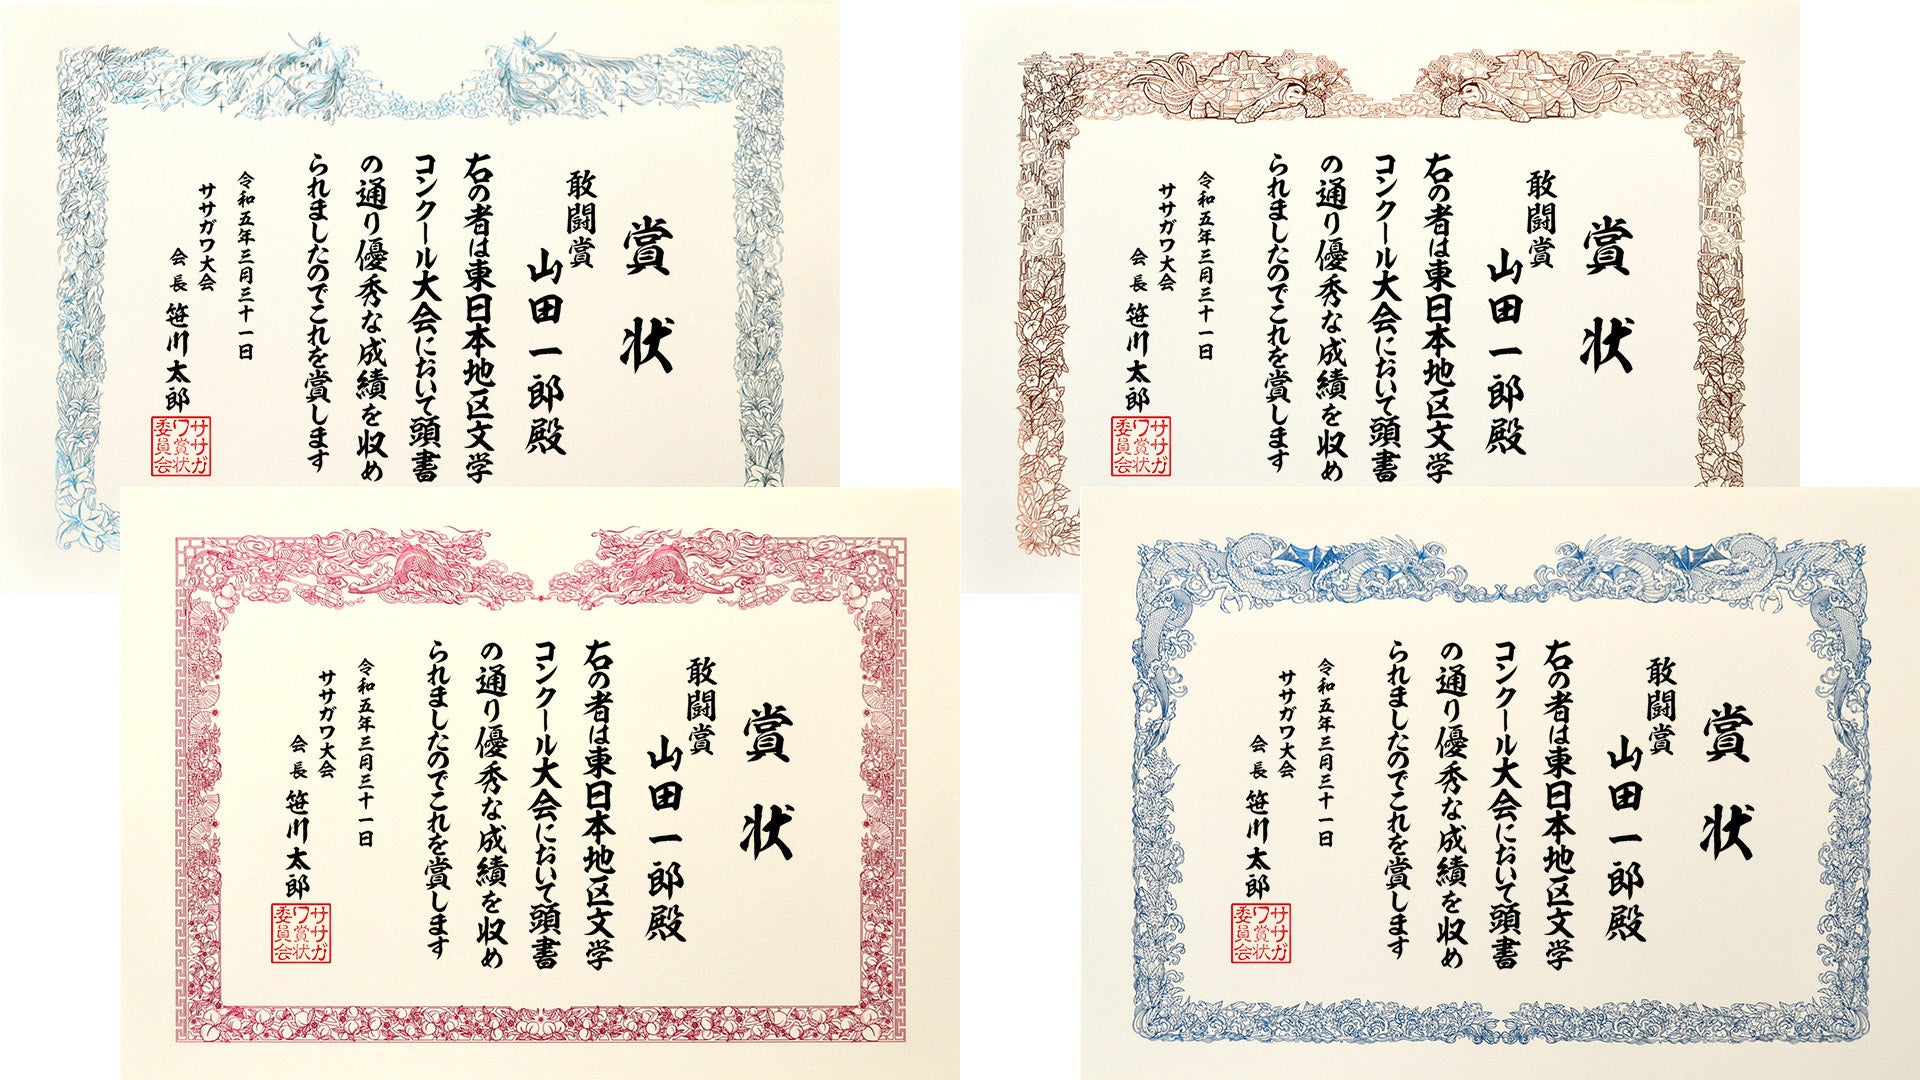 賞状
敢闘賞
山田一郎殿
右の者は東日本地区文学
コンクール大会において頭書
の通り優秀な成績を収め
られましたのでこれを賞します
令和五年三月三十一日
ササガワ大会
会長 笹川太郎
ササガ
ワ賞状
委員会
賞状
敢闘賞
山田一郎殿
右の者は東日本地区文学
コンクール大会において頭書
の通り優秀な成績を収め
られましたのでこれを賞します
令和五年三月三十一日
ササガワ大会
会長 笹川太郎
ササガ
ワ賞状
委員会
賞状
敢闘賞
山田一郎殿
右の者は東日本地区文学
コンクール大会において頭書
の通り優秀な成績を収め
られましたのでこれを賞します
令和五年三月三十一日
ササガワ大会
会長 笹川太郎
ササガ
ワ賞状
委員会
賞状
敢闘賞
山田一郎殿
右の者は東日本地区文学
コンクール大会において頭書
の通り優秀な成績を収め
られましたのでこれを賞します
令和五年三月三十一日
ササガワ大会
会長 笹川太郎
ササガ
ワ賞状
委員会